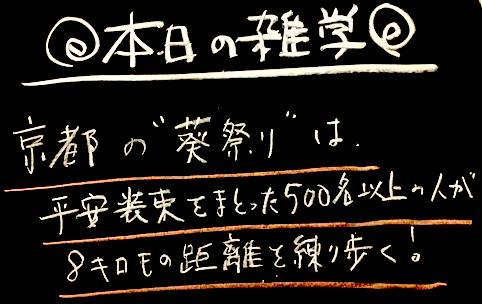 本日の雑学
京都の"葵祭り"は、
平安装束をまとった500名以上の人が
8キロもの距離を練り歩く！